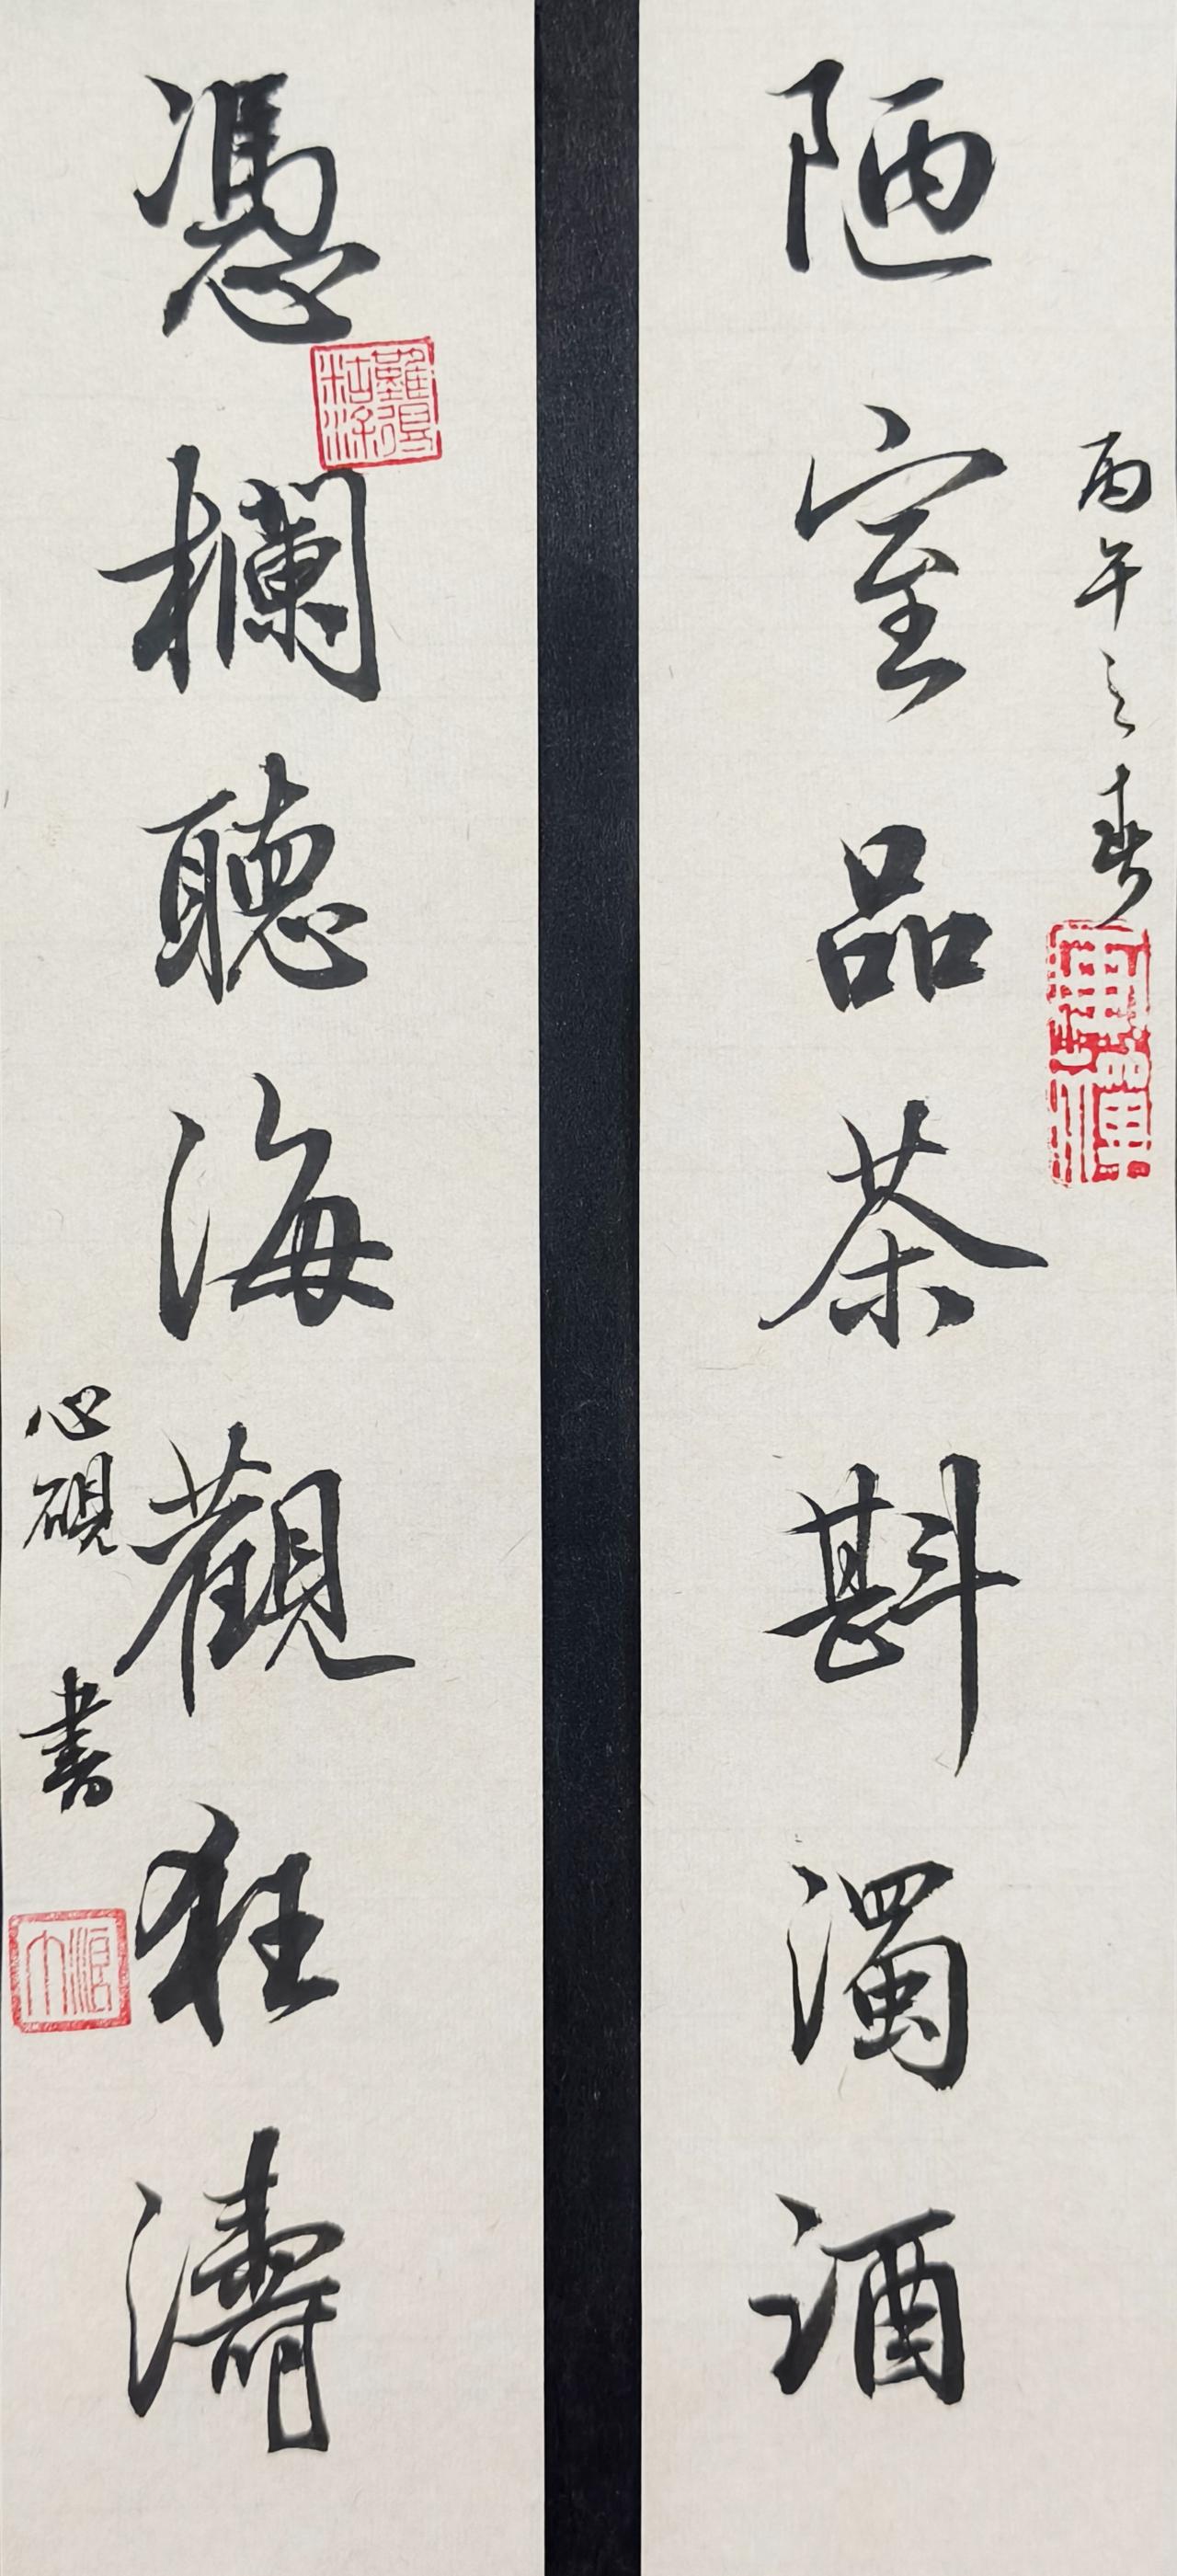 丙午之春
陋室品茶斟濁酒
憑欄聽海觀狂濤
心硯書
難得糊塗